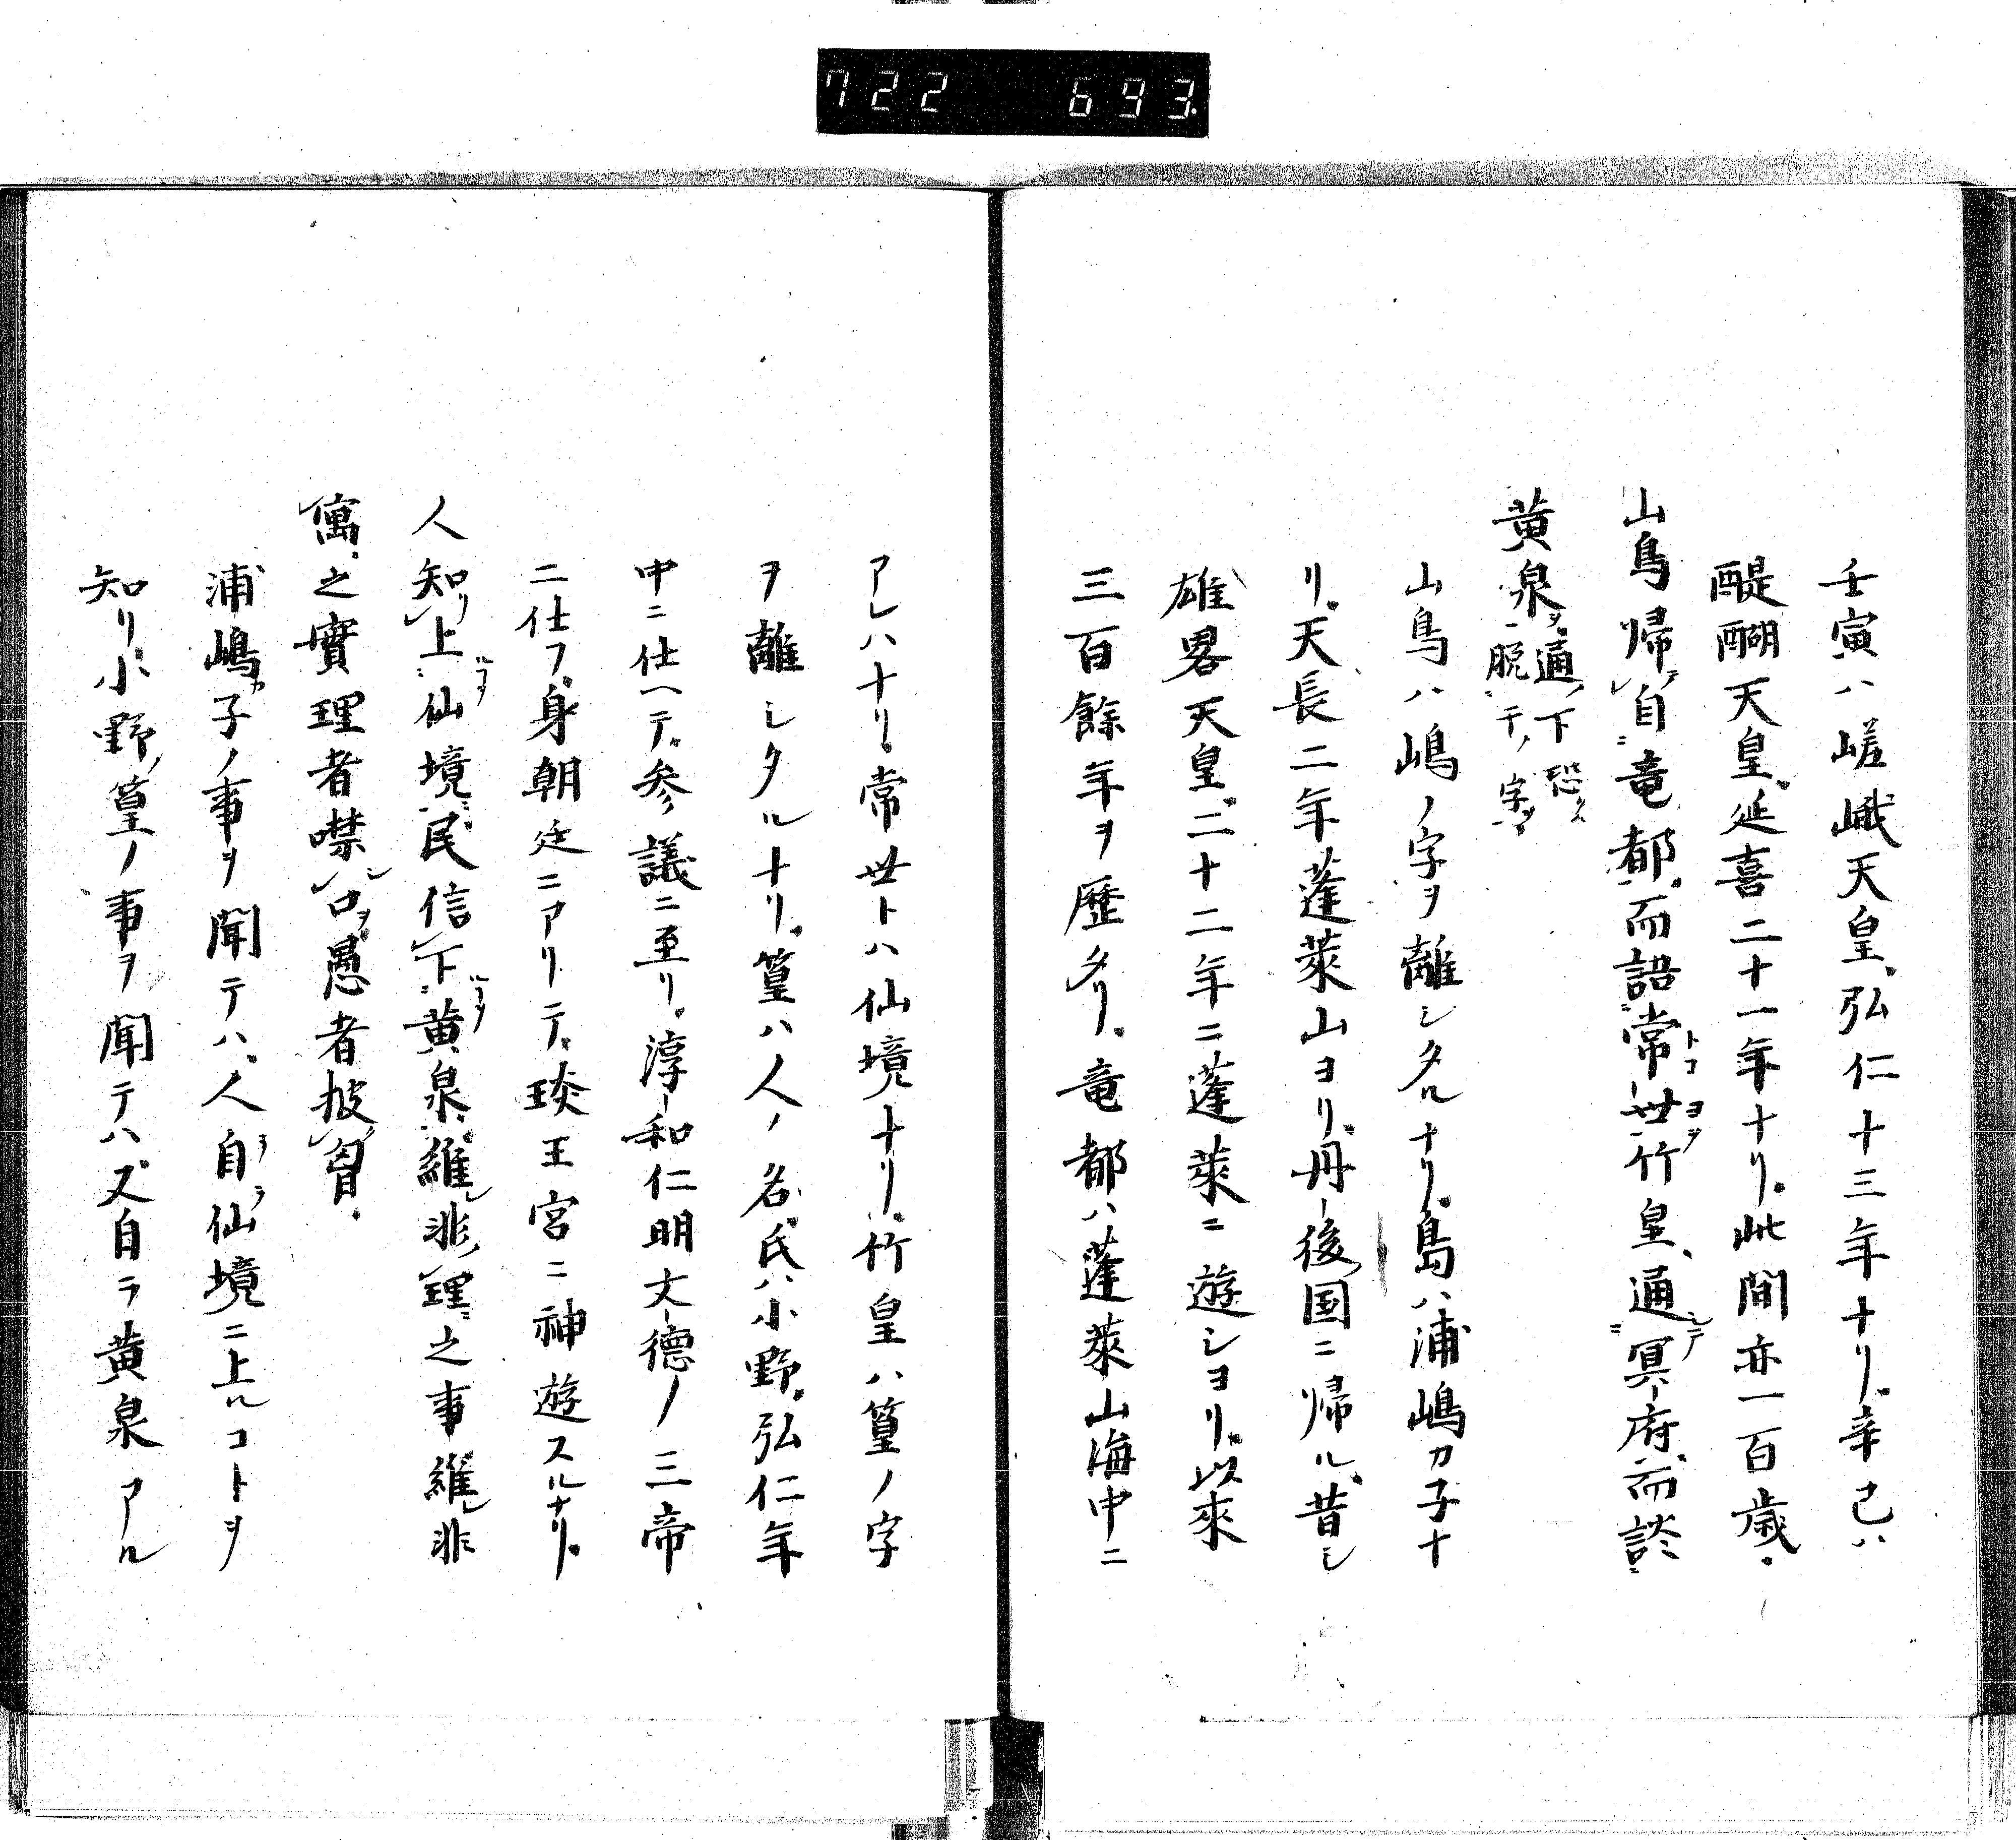 722 693
壬寅ハ嵯峨天皇弘仁十三年ナリ辛巳ハ
醍醐天皇延喜二十一年ナリ此間亦一百歳
山鳥帰自竜都而語常世竹皇通冥府而談
黄泉通ノ下恐クハ脱テノ字ヲ
山鳥ハ嶋ノ字ヲ離シタルナリ島ハ浦嶋カ子ナ
リ天長二年蓬萊山ヨリ丹後国ニ帰ル昔シ
雄畧天皇二十二年ニ蓬萊ニ遊シヨリ以來
三百餘年ヲ歷タリ竜都ハ蓬萊山海中ニ
アレハナリ常世トハ仙境ナリ竹皇ハ篁ノ字
ヲ離シタルナリ篁ハ人ノ名氏ハ小野弘仁年
中ニ仕ヘテ参議ニ至リ淳和仁明文德ノ三帝
ニ仕フ身朝廷ニアリテ琰王宮ニ神遊スルナリ
人知上仙境民信下黄泉維非理之事維非
寓之實理者噤口愚者披胷
浦嶋カ子ノ事ヲ聞テハ人自ラ仙境ニ上ルコトヲ
知リ小野篁ノ事ヲ聞テハ又自ラ黄泉アル